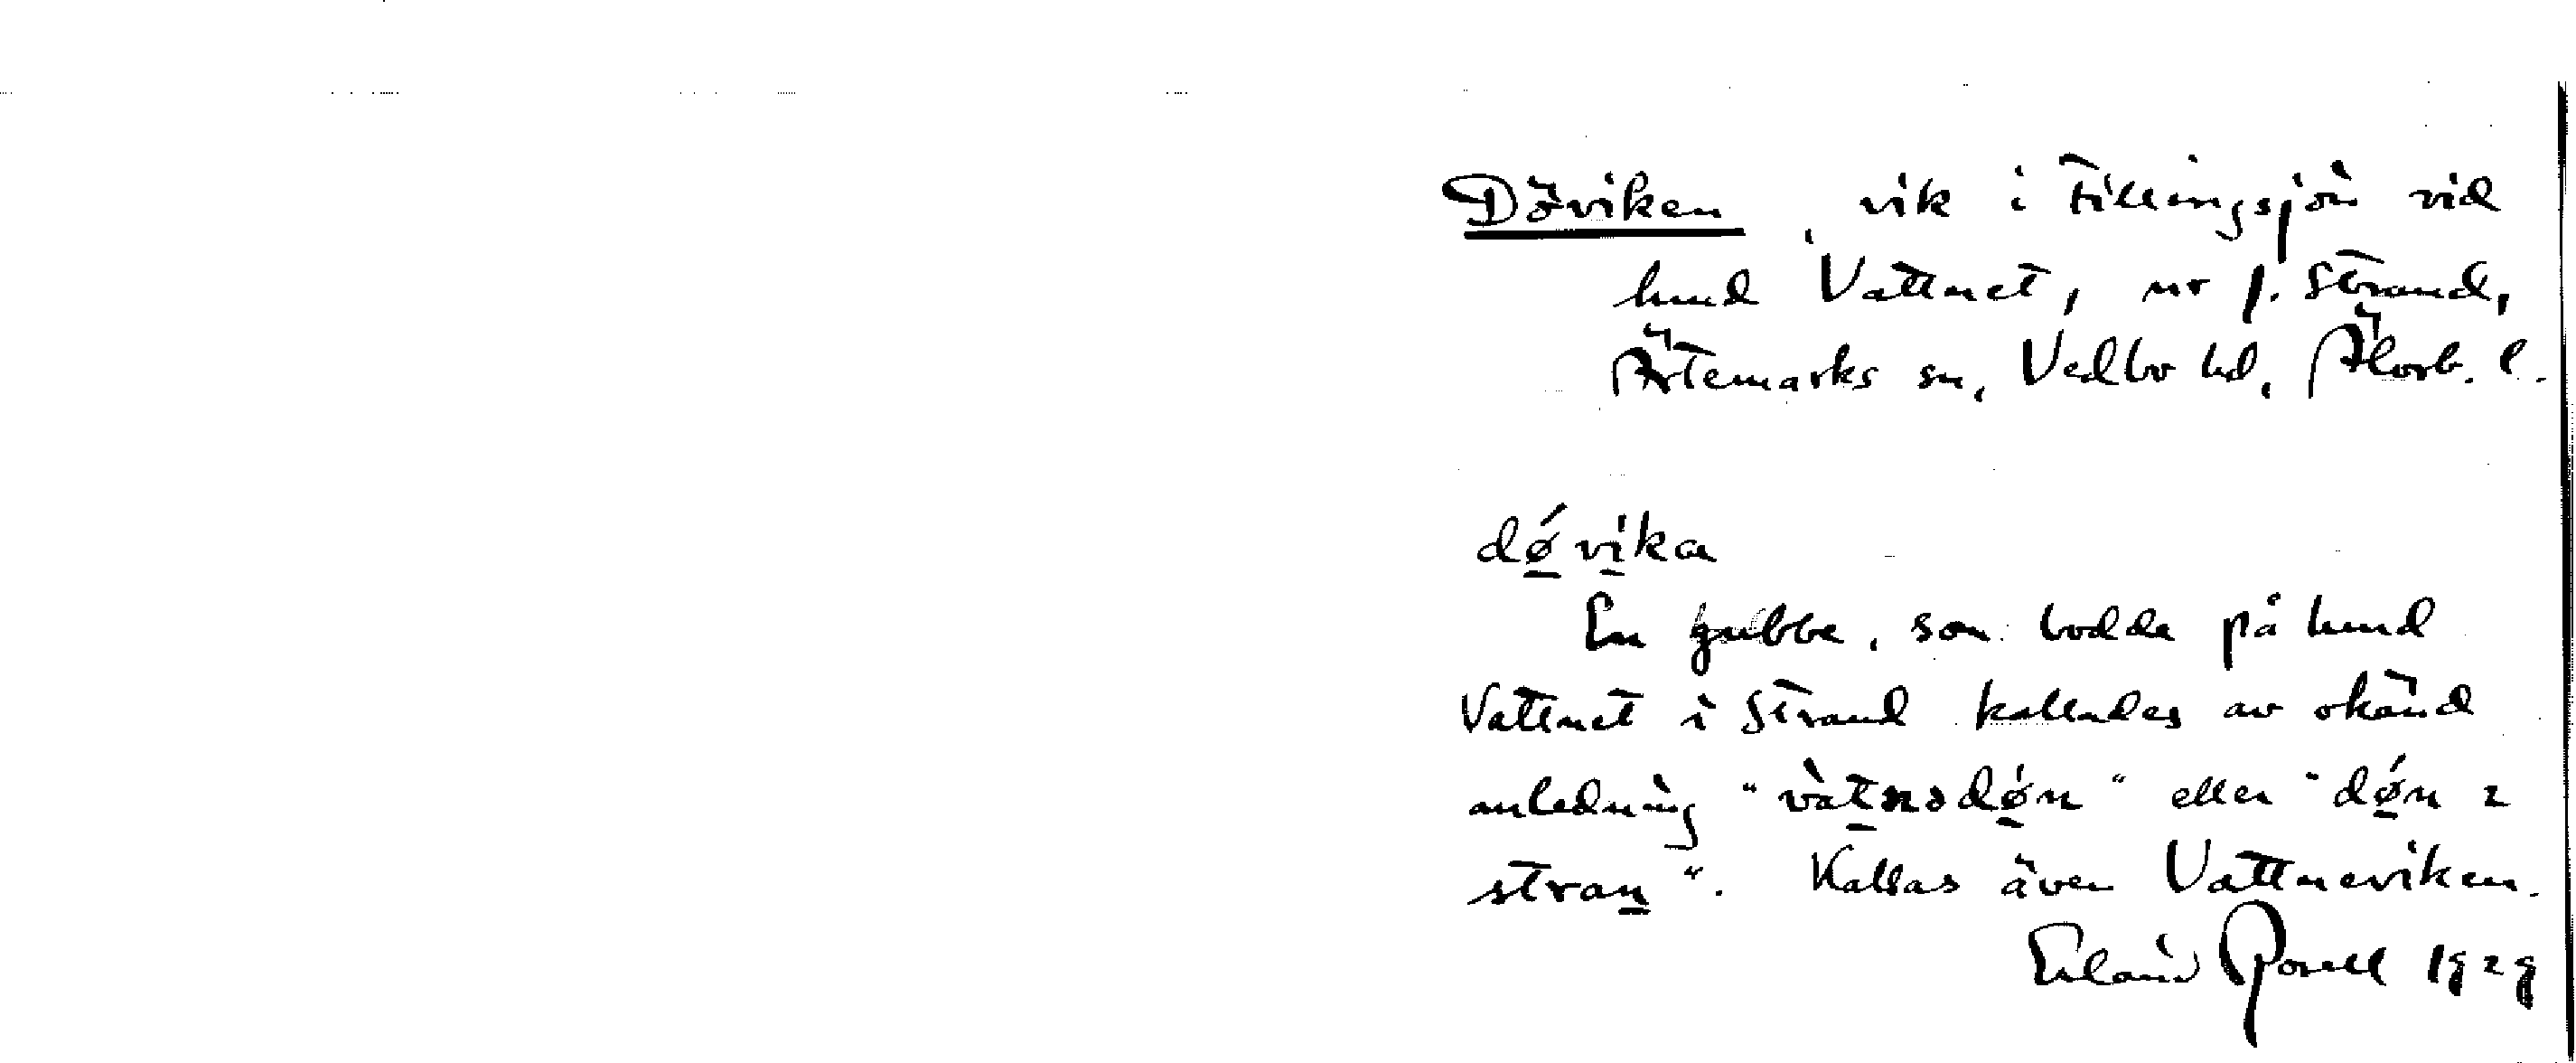 Döviken, vik i Tillingsjön vid
lund Vattnet, ur f. Strand,
Ärtemarks sn, Vedbo hd, Älvsb. l.
dǿvika
En gubbe, som bodde på lund
Vattnet i Strand kallades av okänd
anledning "vàtnədǿn" eller "dǿn ı
stran". Kallas även Vattneviken.
Erland Rosell 1929